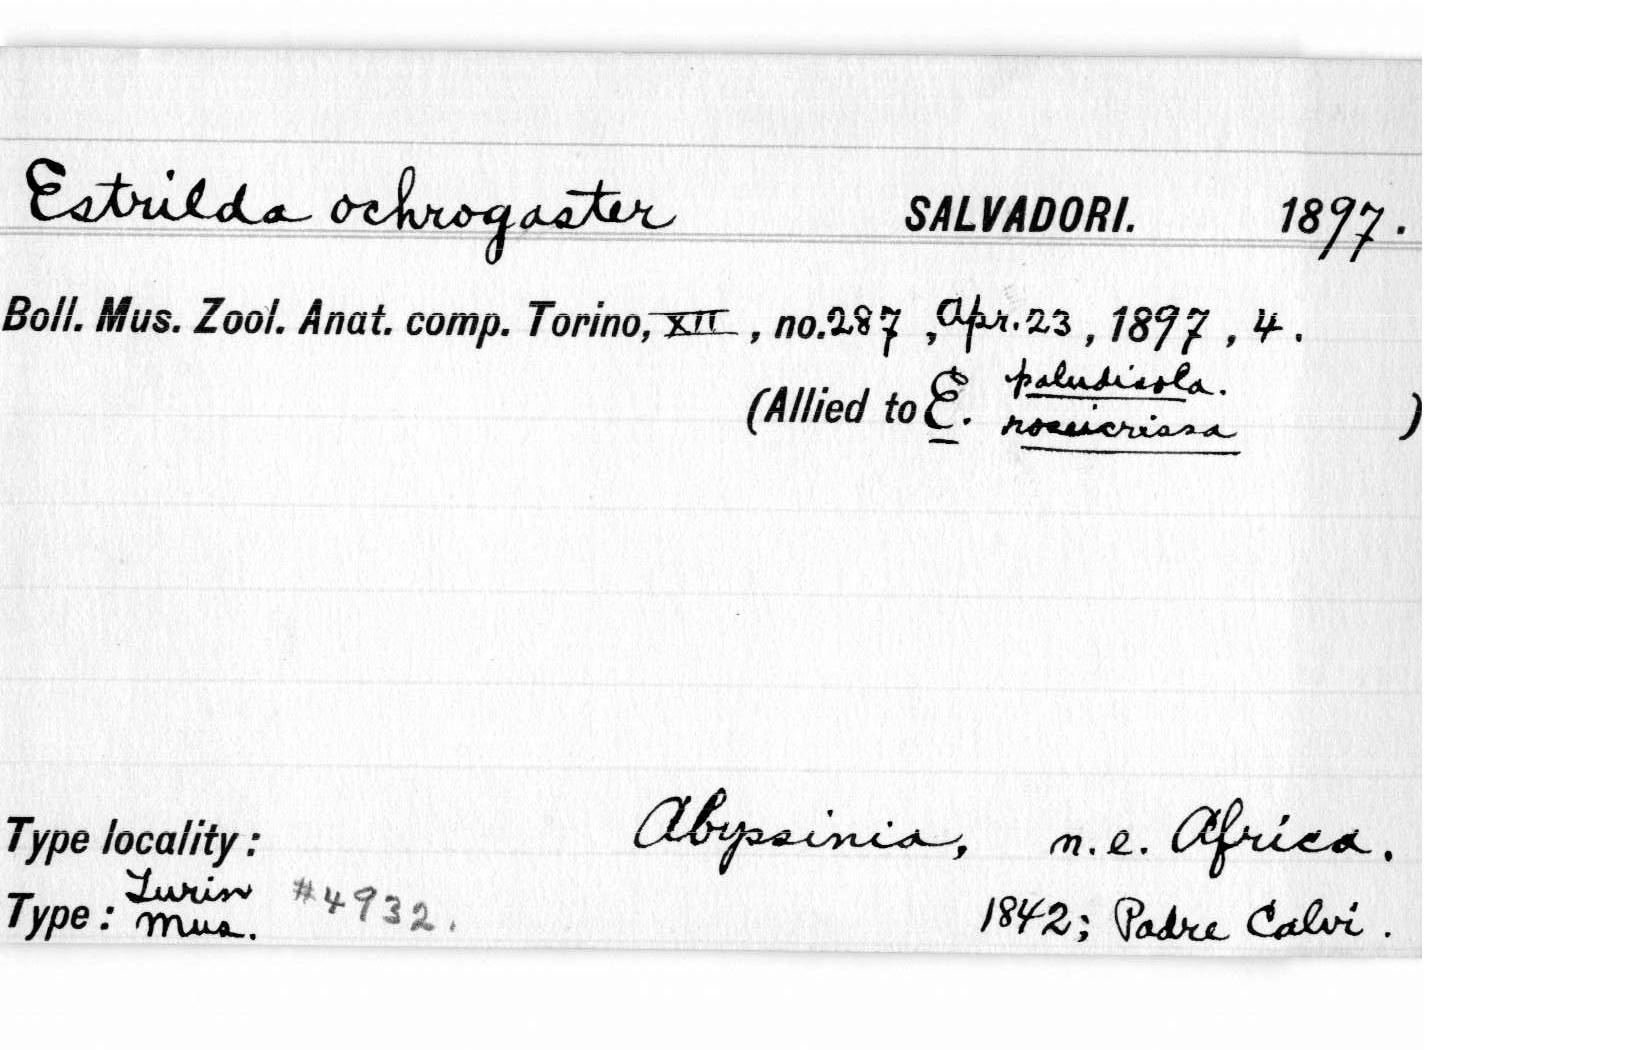 Estrilda ochrogaster SALVADORI. 1897.
Boll. Mus. Zool. Anat. comp. Torino, XII, no. 287, Apr. 23, 1897, 4.
(Allied to E. paludicola.
roseicrissa )
Type locality: Abyssinia, n.e. Africa.
Type: Turin Mus. #4932. 1842; Padre Calvi.